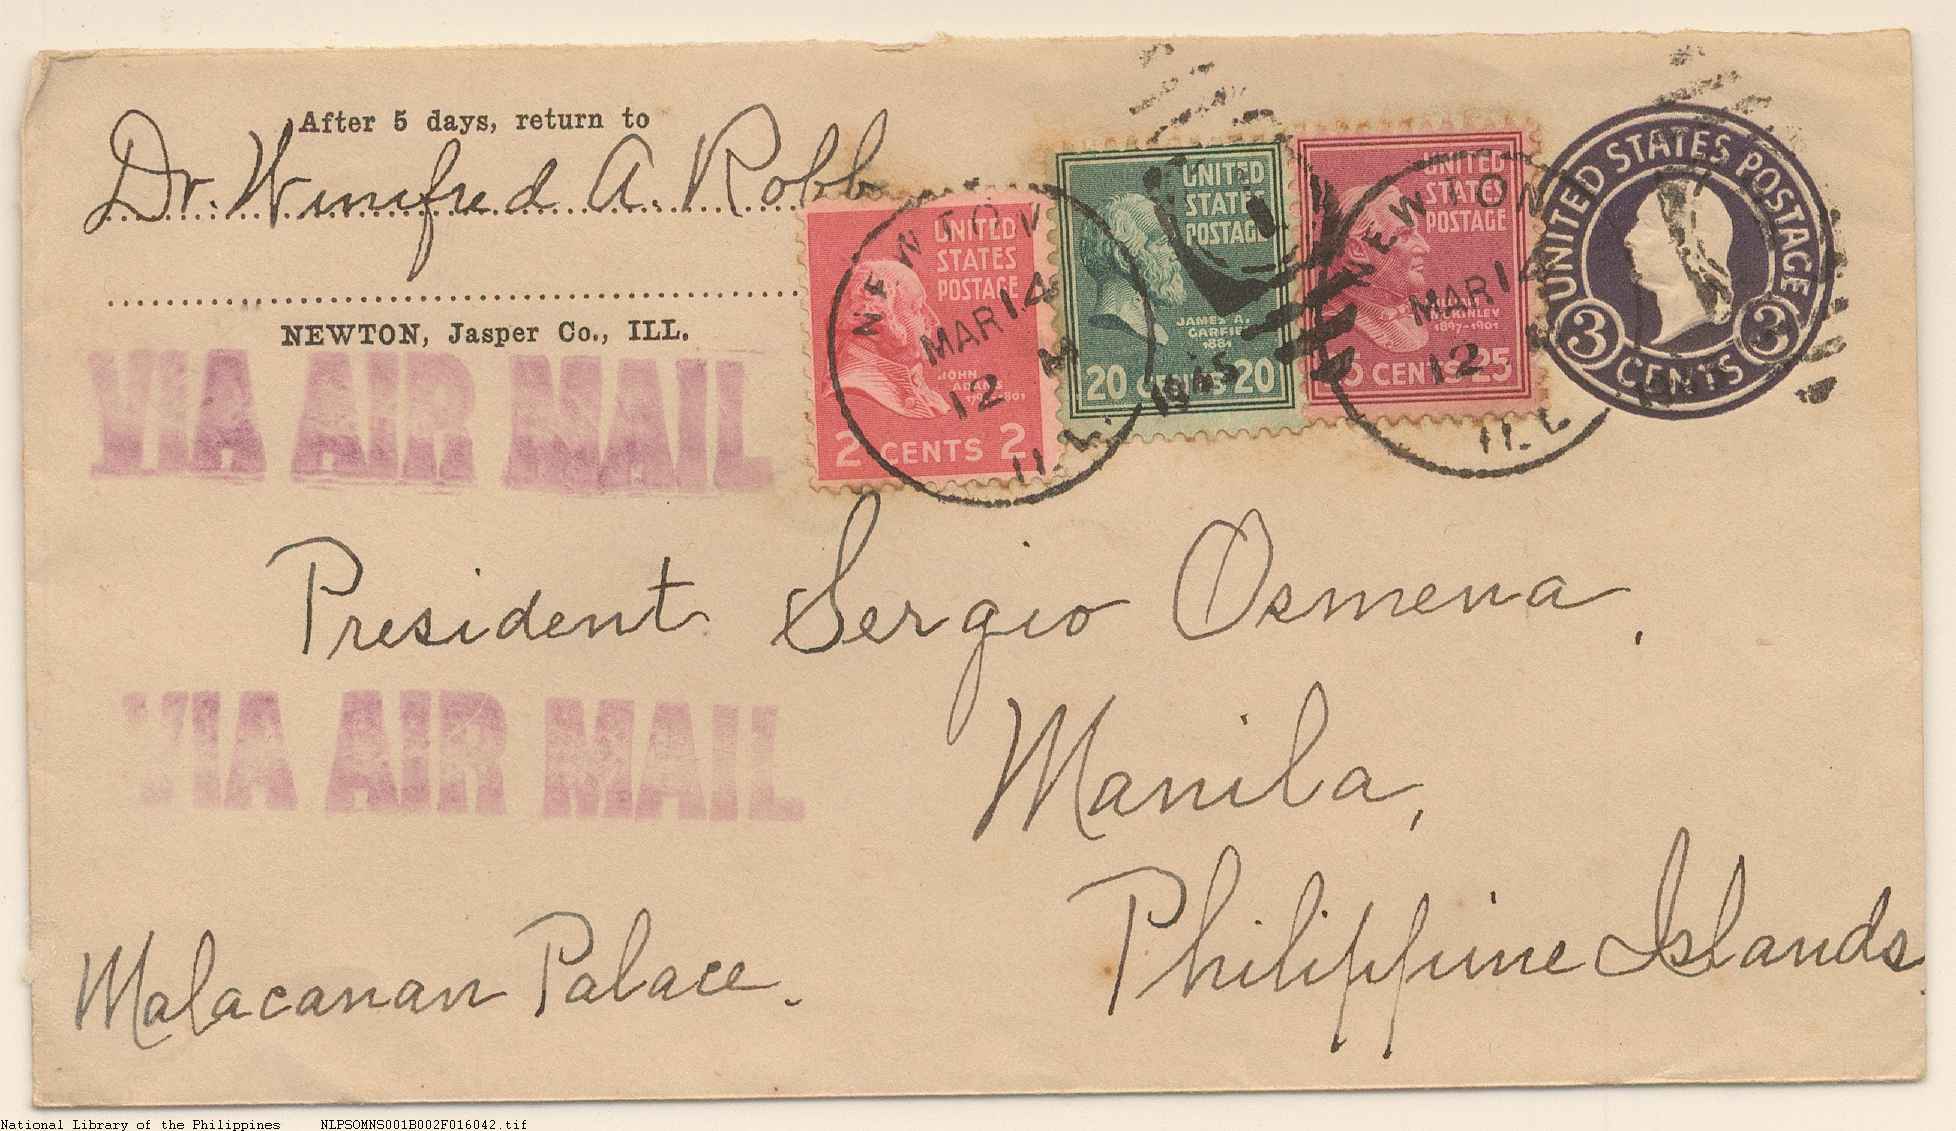 After 5 days, return to
Dr. Winifred A. Robb
NEWTON, Jasper Co., ILL.
VIA AIR MAIL
UNITED
STATES
POSTAGE
JOHN
ADAMS
2 CENTS 2
NEWTON
MAR 14
12 M
1945
ILL.
UNITED
STATES
POSTAGE
JAMES A.
GARFIELD
1881
20 CENTS 20
UNITED
STATES
POSTAGE
McKINLEY
1897-1901
CENTS 25
NEWTON
MAR 14
12
ILL
UNITED STATES POSTAGE
3 CENTS 3
President Sergio Osmena,
VIA AIR MAIL
Manila,
Philippine Islands.
Malacanan Palace.
National Library of the Philippines NLPSOMNS001B002F016042.tif